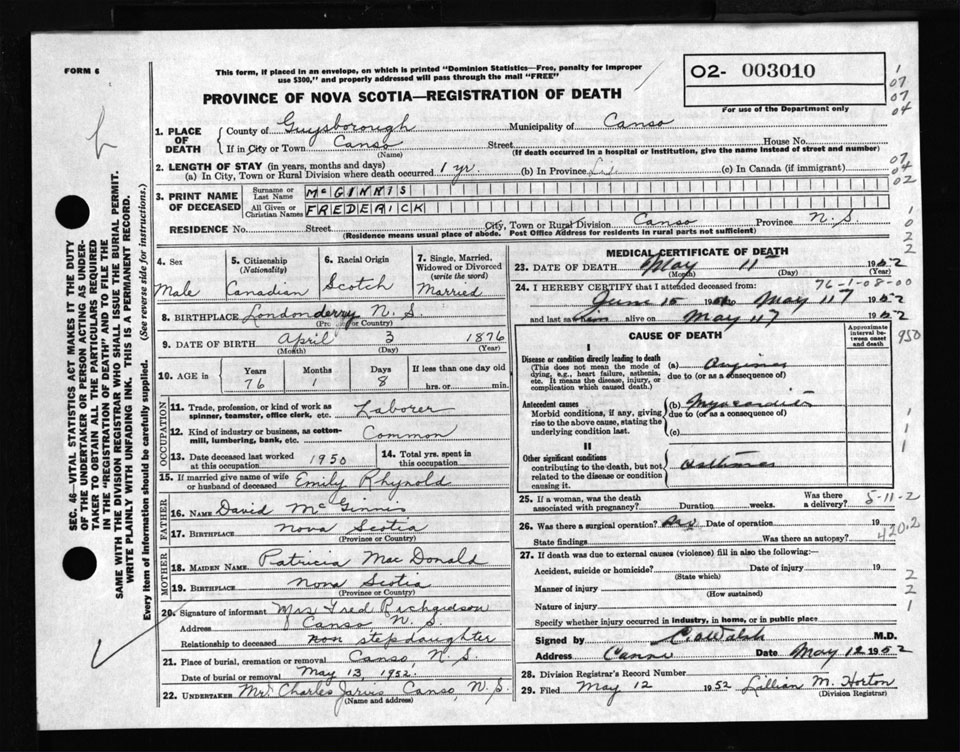 FORM 6
This form, if placed in an envelope, on which is printed "Dominion Statistics—Free, penalty for improper
use $300," and properly addressed will pass through the mail "FREE"
PROVINCE OF NOVA SCOTIA—REGISTRATION OF DEATH
O2- 003010
For use of the Department only
1
07
07
04
1. PLACE OF DEATH
County of Guysborough Municipality of Canso
If in City or Town Canso Street House No.
(Name) (If death occurred in a hospital or institution, give the name instead of street and number)
2. LENGTH OF STAY (in years, months and days)
(a) In City, Town or Rural Division where death occurred 1 yr. (b) In Province Life (c) In Canada (if immigrant)
07
04
02
3. PRINT NAME OF DECEASED
Surname or Last Name McGINNIS
All Given or Christian Names FREDERICK
RESIDENCE No. Street City, Town or Rural Division Canso Province N.S.
(Residence means usual place of abode. Post Office Address for residents in rural parts not sufficient)
1
0
2
2
4. Sex Male
5. Citizenship (Nationality) Canadian
6. Racial Origin Scotch
7. Single, Married, Widowed or Divorced (write the word) Married
8. BIRTHPLACE Londonderry N.S.
(Province or Country)
9. DATE OF BIRTH April 3 1876
(Month) (Day) (Year)
10. AGE in Years Months Days If less than one day old
76 1 8 hrs. or min.
OCCUPATION
11. Trade, profession, or kind of work as spinner, teamster, office clerk, etc. Laborer
12. Kind of industry or business, as cotton-mill, lumbering, bank, etc. Common
13. Date deceased last worked at this occupation 1950
14. Total yrs. spent in this occupation
15. If married give name of wife or husband of deceased Emily Rhynold
FATHER
16. NAME David McGinnis
17. BIRTHPLACE Nova Scotia
(Province or Country)
MOTHER
18. MAIDEN NAME Patricia MacDonald
19. BIRTHPLACE Nova Scotia
(Province or Country)
20. Signature of informant Mrs Fred Richardson
Address Canso N.S.
Relationship to deceased stepdaughter
21. Place of burial, cremation or removal Canso, N.S.
Date of burial or removal May 13, 1952.
22. UNDERTAKER Mr. Charles Jarvis Canso, N.S.
(Name and address)
MEDICAL CERTIFICATE OF DEATH
23. DATE OF DEATH May 11 1952
(Month) (Day) (Year)
76-1-08-00
24. I HEREBY CERTIFY that I attended deceased from:
June 15 19 to May 11 1952
and last saw him alive on May 11 1952
CAUSE OF DEATH
Approximate interval between onset and death
950
I
Disease or condition directly leading to death
(This does not mean the mode of dying, e.g., heart failure, asthenia, etc. It means the disease, injury, or complication which caused death.)
(a) Angina
due to (or as a consequence of)
Antecedent causes
Morbid conditions, if any, giving rise to the above cause, stating the underlying condition last.
(b) Myocarditis
due to (or as a consequence of)
(c)
1
1
II
Other significant conditions
contributing to the death, but not related to the disease or condition causing it.
asthma
25. If a woman, was the death associated with pregnancy? Duration weeks. Was there a delivery?
5-11-2
26. Was there a surgical operation? Date of operation 19
State findings Was there an autopsy?
420.2
27. If death was due to external causes (violence) fill in also the following:—
Accident, suicide or homicide? Date of injury 19
(State which)
Manner of injury
(How sustained)
Nature of injury
Specify whether injury occurred in industry, in home, or in public place
2
2
1
Signed by C. O. Walsh M.D.
Address Canso Date May 12 1952
28. Division Registrar's Record Number
29. Filed May 12 1952 Lillian M. Horton
(Division Registrar)
SEC. 46—VITAL STATISTICS ACT MAKES IT THE DUTY
OF THE UNDERTAKER OR PERSON ACTING AS UNDER-
TAKER TO OBTAIN ALL THE PARTICULARS REQUIRED
IN THE "REGISTRATION OF DEATH" AND TO FILE THE
SAME WITH THE DIVISION REGISTRAR WHO SHALL ISSUE THE BURIAL PERMIT.
WRITE PLAINLY WITH UNFADING INK. THIS IS A PERMANENT RECORD.
Every item of information should be carefully supplied. (See reverse side for instructions.)